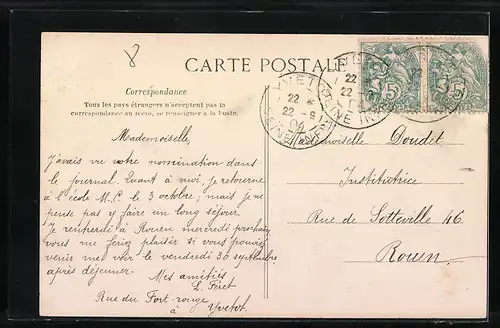 8
CARTE POSTALE
Correspondance
Tous les pays étrangers n'acceptent pas la
correspondance au recto, se renseigner à la poste.
Mademoiselle,
J'avais vu votre nomination dans
le journal. Quant à moi, je retourne
à l'école M.C. le 3 octobre; mais je ne
pense pas y faire un long séjour.
Je reviendrai à Rouen mercredi prochain
vous me feriez plaisir si vous pouviez
venir me voir le vendredi 30 septembre
après déjeuner.
Mes amitiés
L. Féret
Rue du Fort-rouge
à Yvetot.
YVETOT
22
22 - 9
04
SEINE INFRE
22
22 - 9
04
5
5
Mademoiselle Doudet
Institutrice
Rue de Sotteville 46
Rouen.